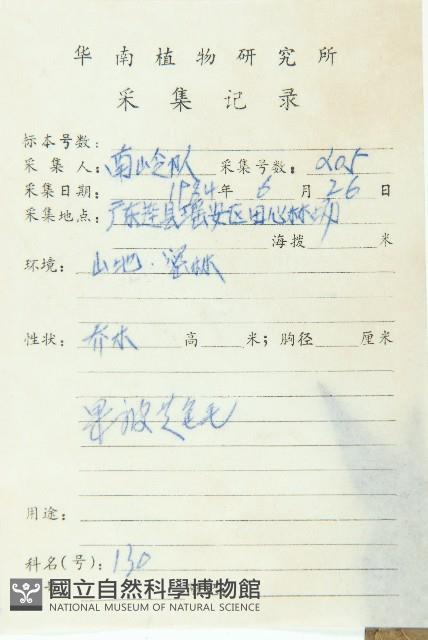 华南植物研究所
采集记录
标本号数:
采集人: 南岭队 采集号数: 205
采集日期: 1984年 6月 26日
采集地点: 广东连县瑶安区田心林场
海拨 米
环境: 山地·密林
性状: 乔木 高 米; 胸径 厘米
果被 毛
用途:
科名(号): 130
國立自然科學博物館
NATIONAL MUSEUM OF NATURAL SCIENCE